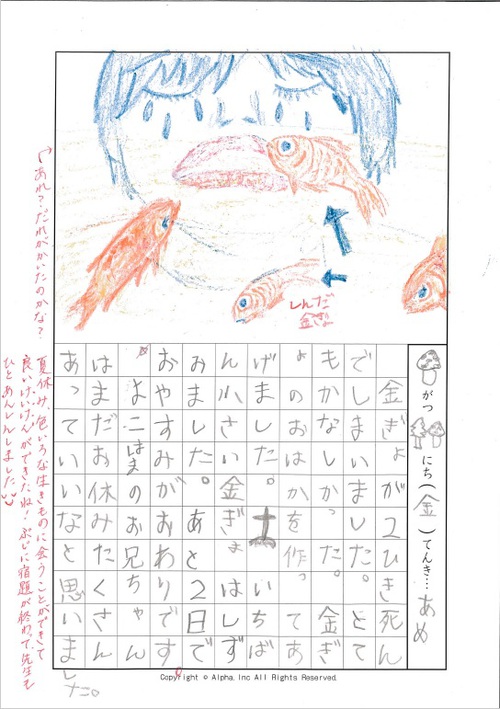 がつ にち(金)てんき… あめ
金ぎょが2ひき死ん
でしまいました。とて
もかなしかった。金ぎ
ょのおはかを作ってあ
げました。いちば
ん小さい金ぎょはしず
みました。あと2日で
おやすみがおわりです
。よこはまのお兄ちゃん
はまだお休みたくさん
あっていいなと思いました。
しんだ
金ぎょ
あれ?だれがかいたのかな?
夏休み、色いろな生きものに会うことができて
良いけいけんができたね!ぶじに宿題が終わって、先生も
ひとあんしんしました
Copyright © Alpha, Inc All Rights Reserved.